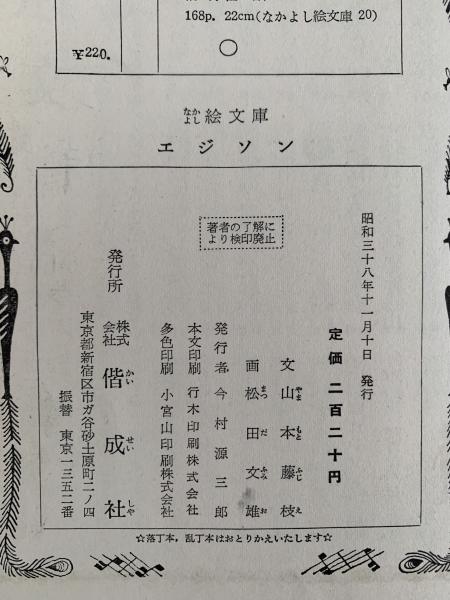 168p. 22cm(なかよし絵文庫 20)
¥220.
なかよし絵文庫
エジソン
昭和三十八年十一月十日 発行
定価 二百二十円
文 山本藤枝
やま もと ふじ え
画 松田文雄
まつ だ ふみ お
発行者 今村源三郎
本文印刷 行木印刷株式会社
多色印刷 小宮山印刷株式会社
著者の了解に
より検印廃止
発行所
株式会社 偕成社
かい せい しゃ
東京都新宿区市ガ谷砂土原町二ノ四
振替 東京一三五二番
☆落丁本,乱丁本はおとりかえいたします☆